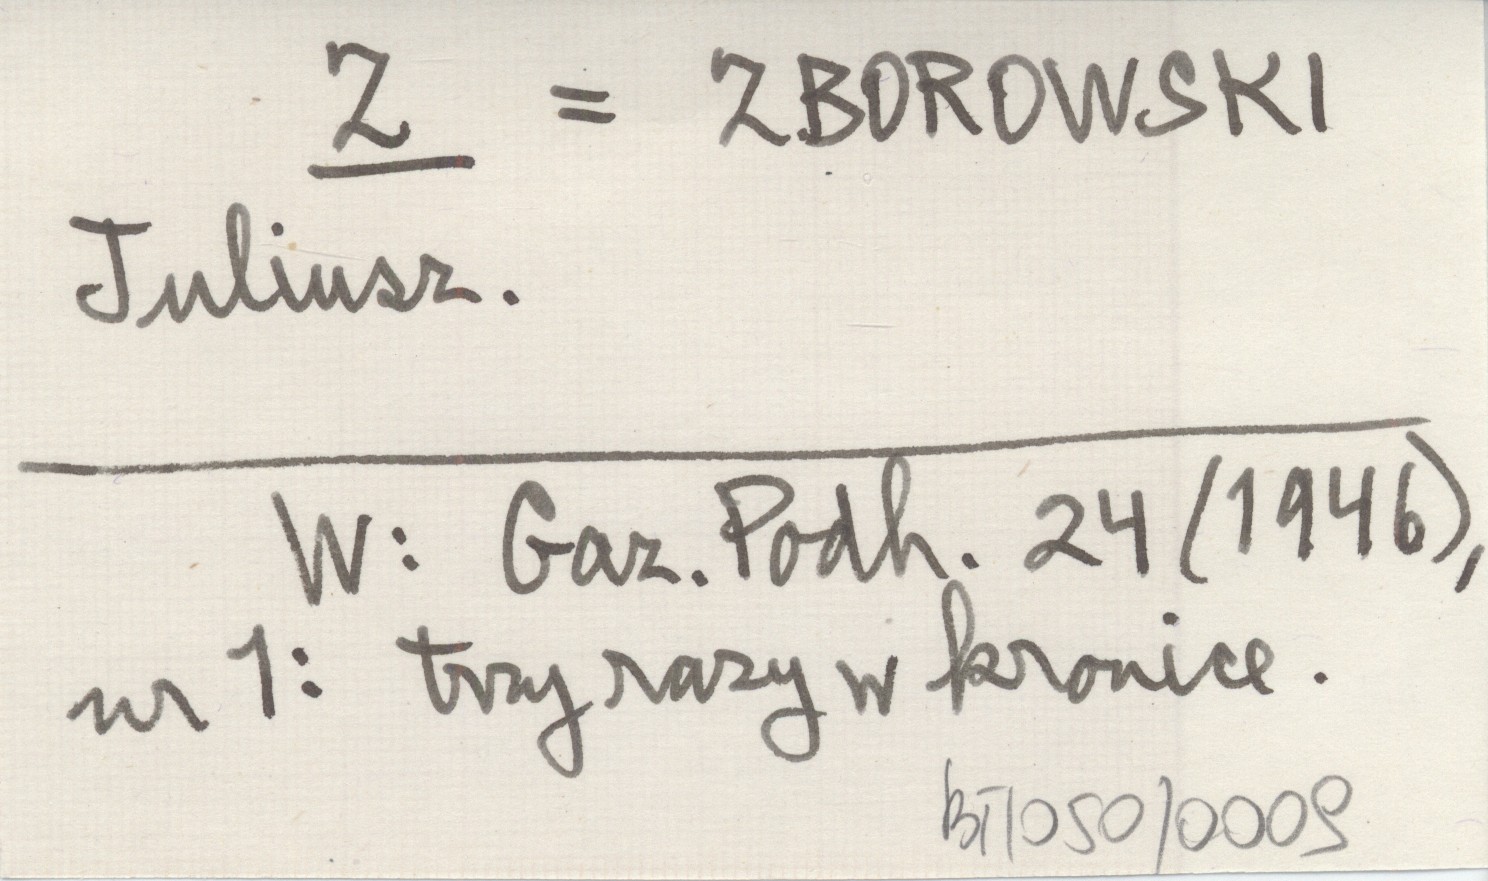 Z = ZBOROWSKI
Juliusz.
W: Gaz. Podh. 24 (1946),
nr 1: trzy razy w kronice.
BT/050/0009